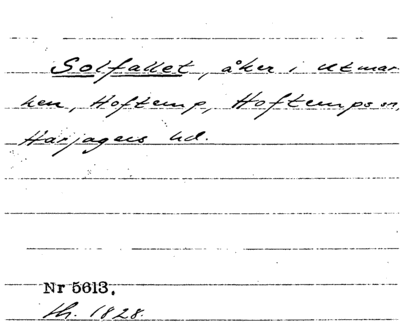 Solfallet, åker i Utmar-
ken, Hoftemp, Hoftemps sn,
Harjagers hd.
Nr 5613.
th. 1828.